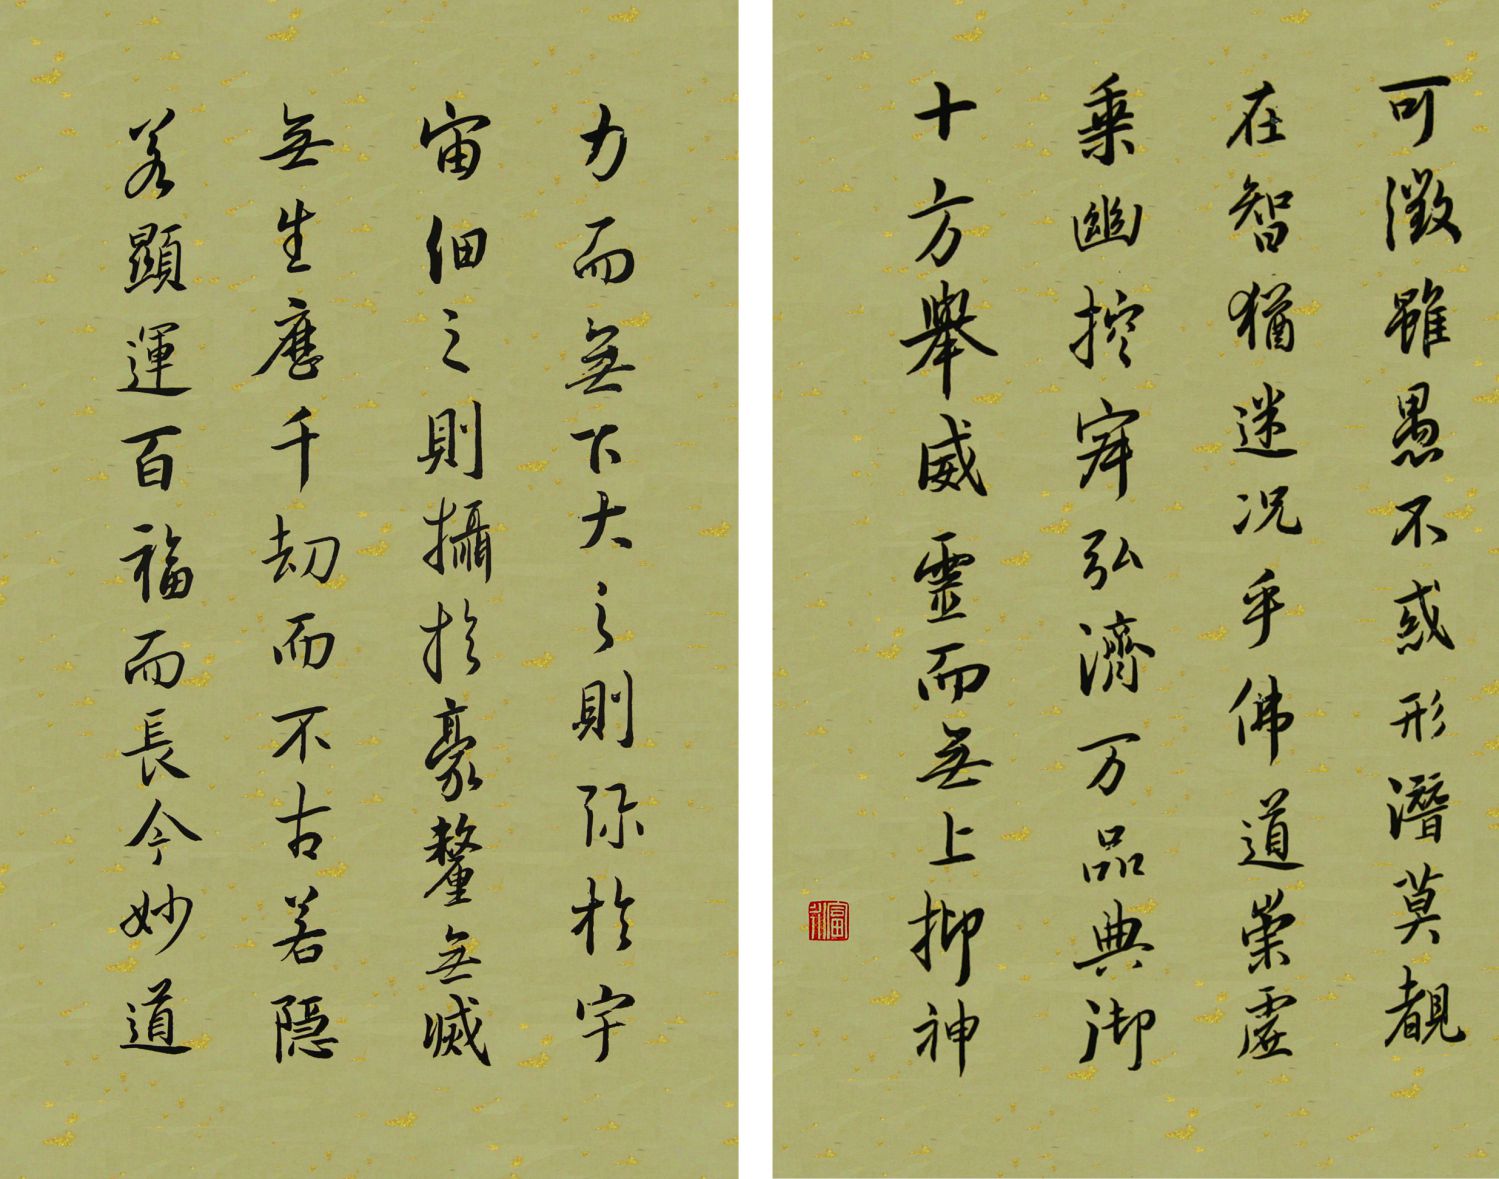 可徵雖愚不惑形潛莫覩
在智猶迷况乎佛道崇虛
乗幽控寂弘濟万品典御
十方舉威靈而無上抑神
力而無下大之則弥於宇
宙細之則攝於豪釐無滅
無生歷千劫而不古若隱
若顯運百福而長今妙道